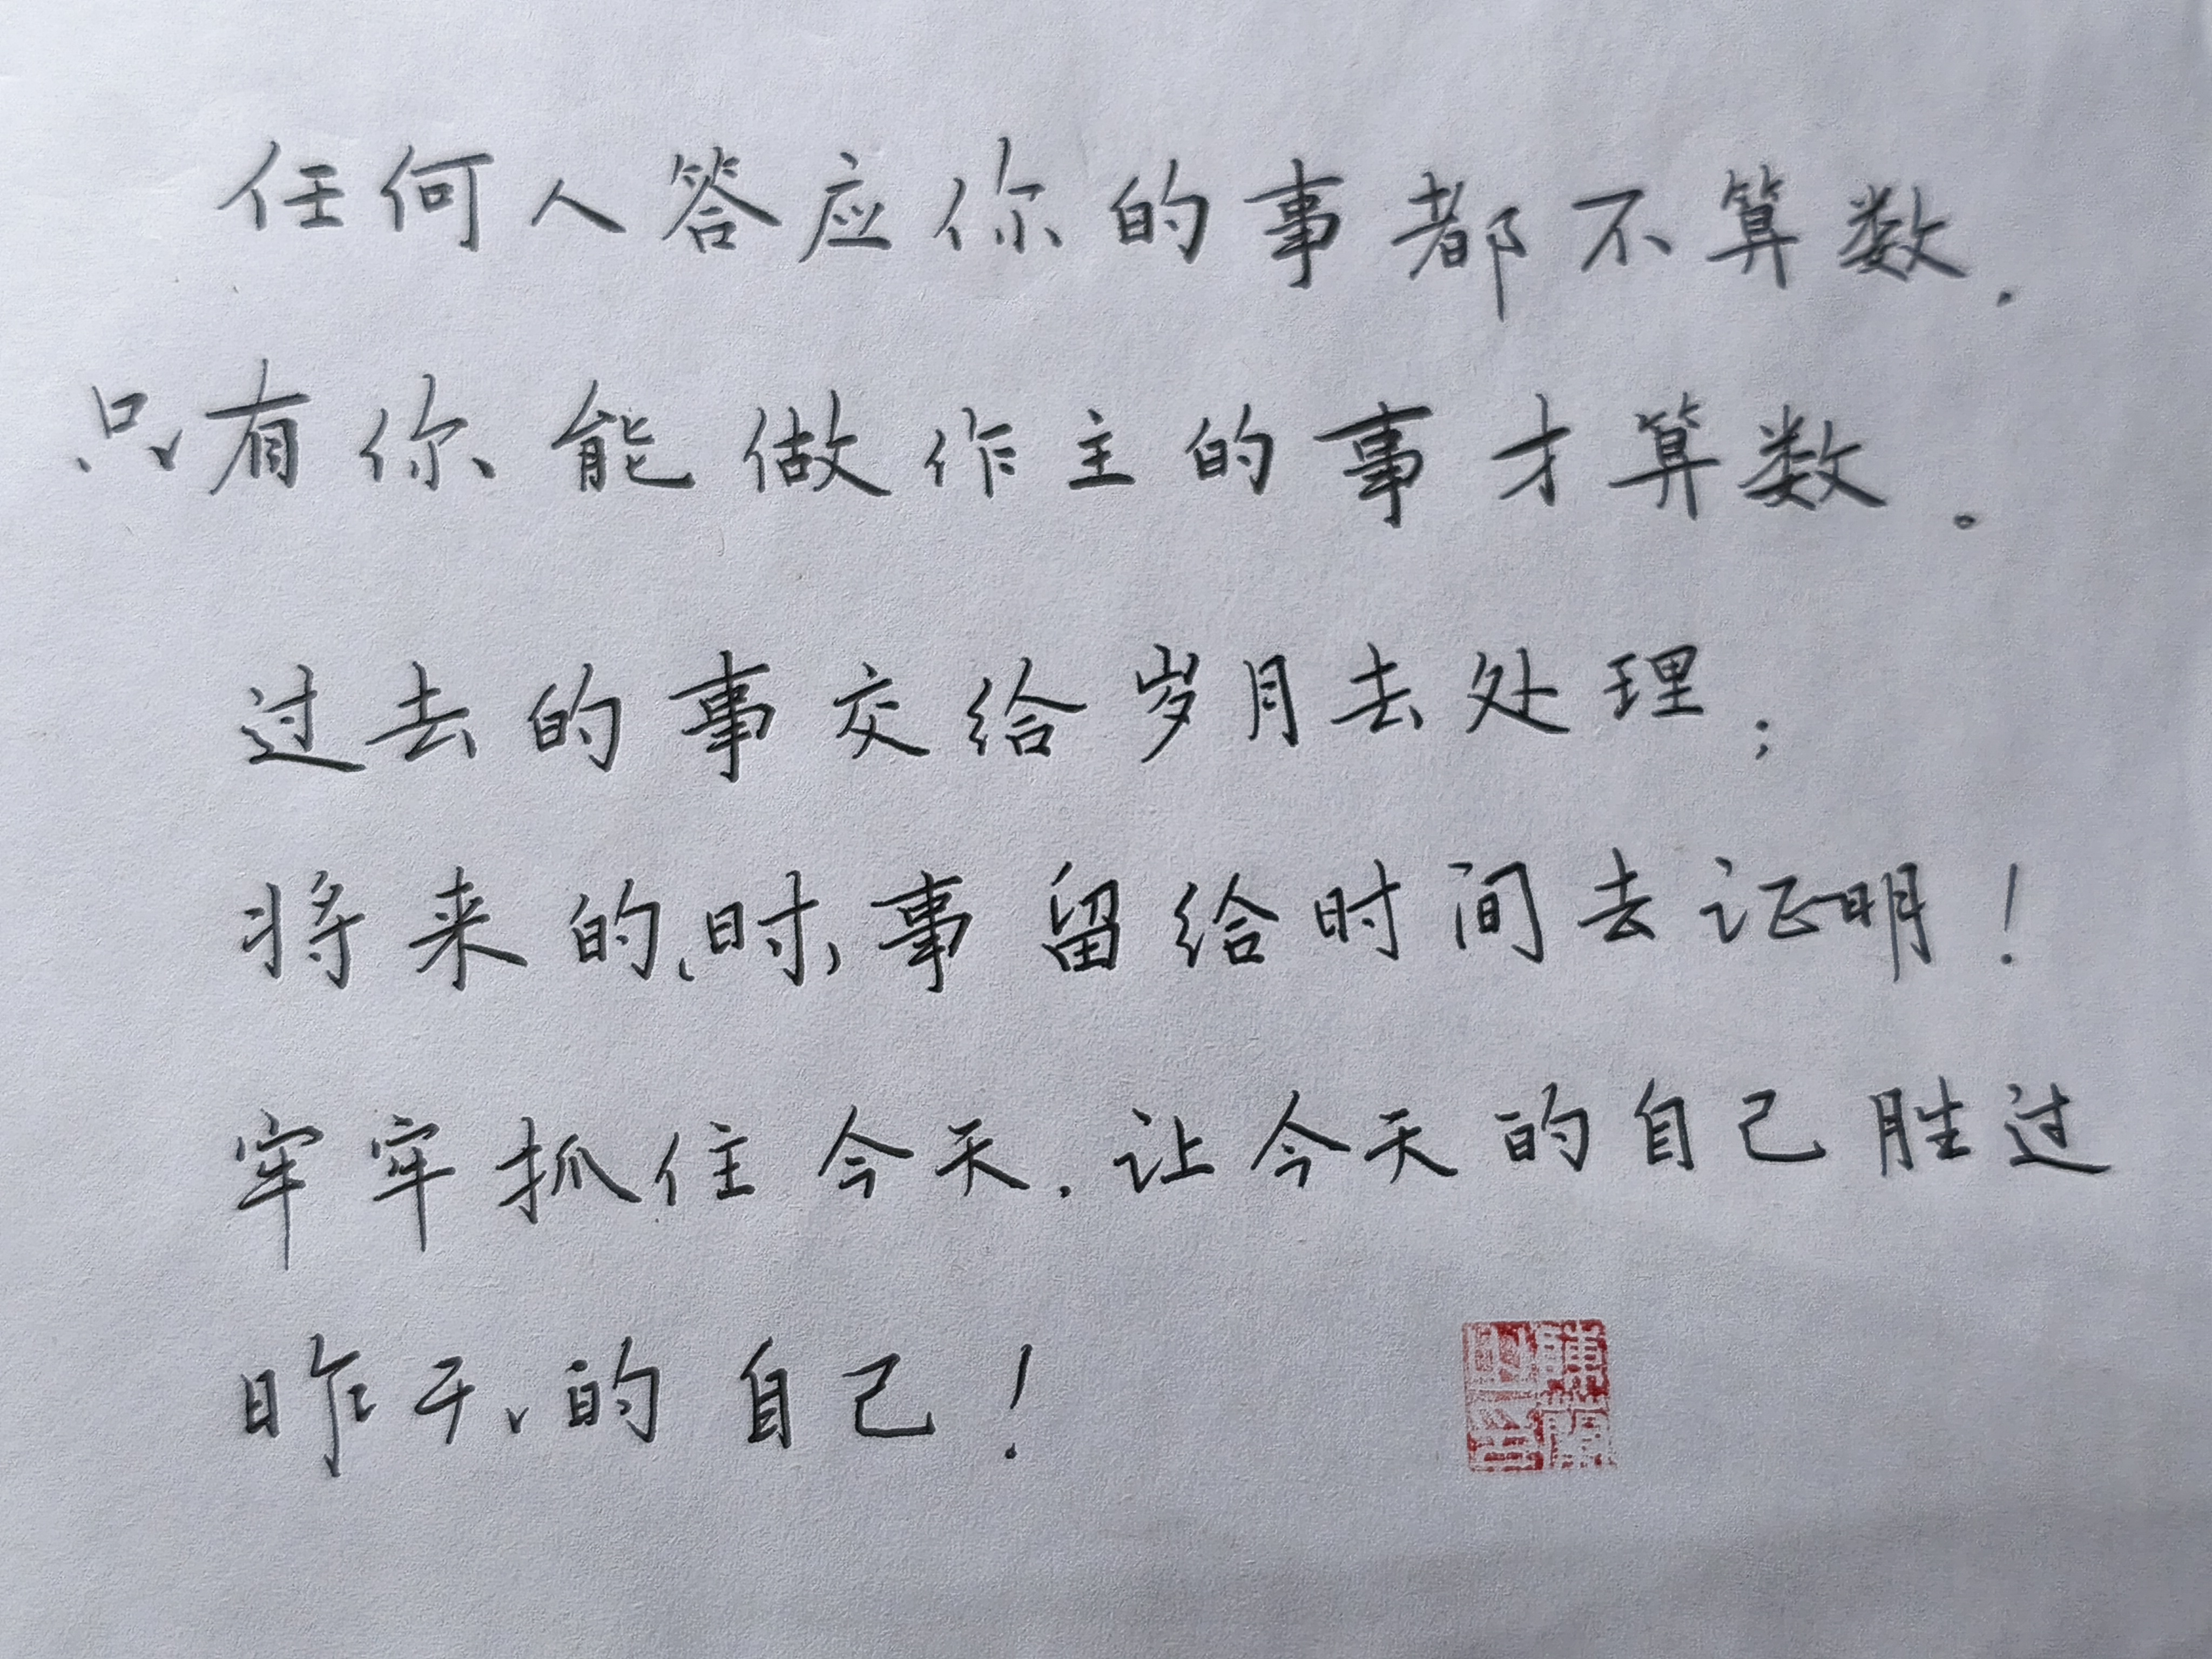 任何人答应你的事都不算数.
只有你能做作主的事才算数。
过去的事交给岁月去处理;
将来的、时、事留给时间去证明!
牢牢抓住今天.让今天的自己胜过
昨天的自己!